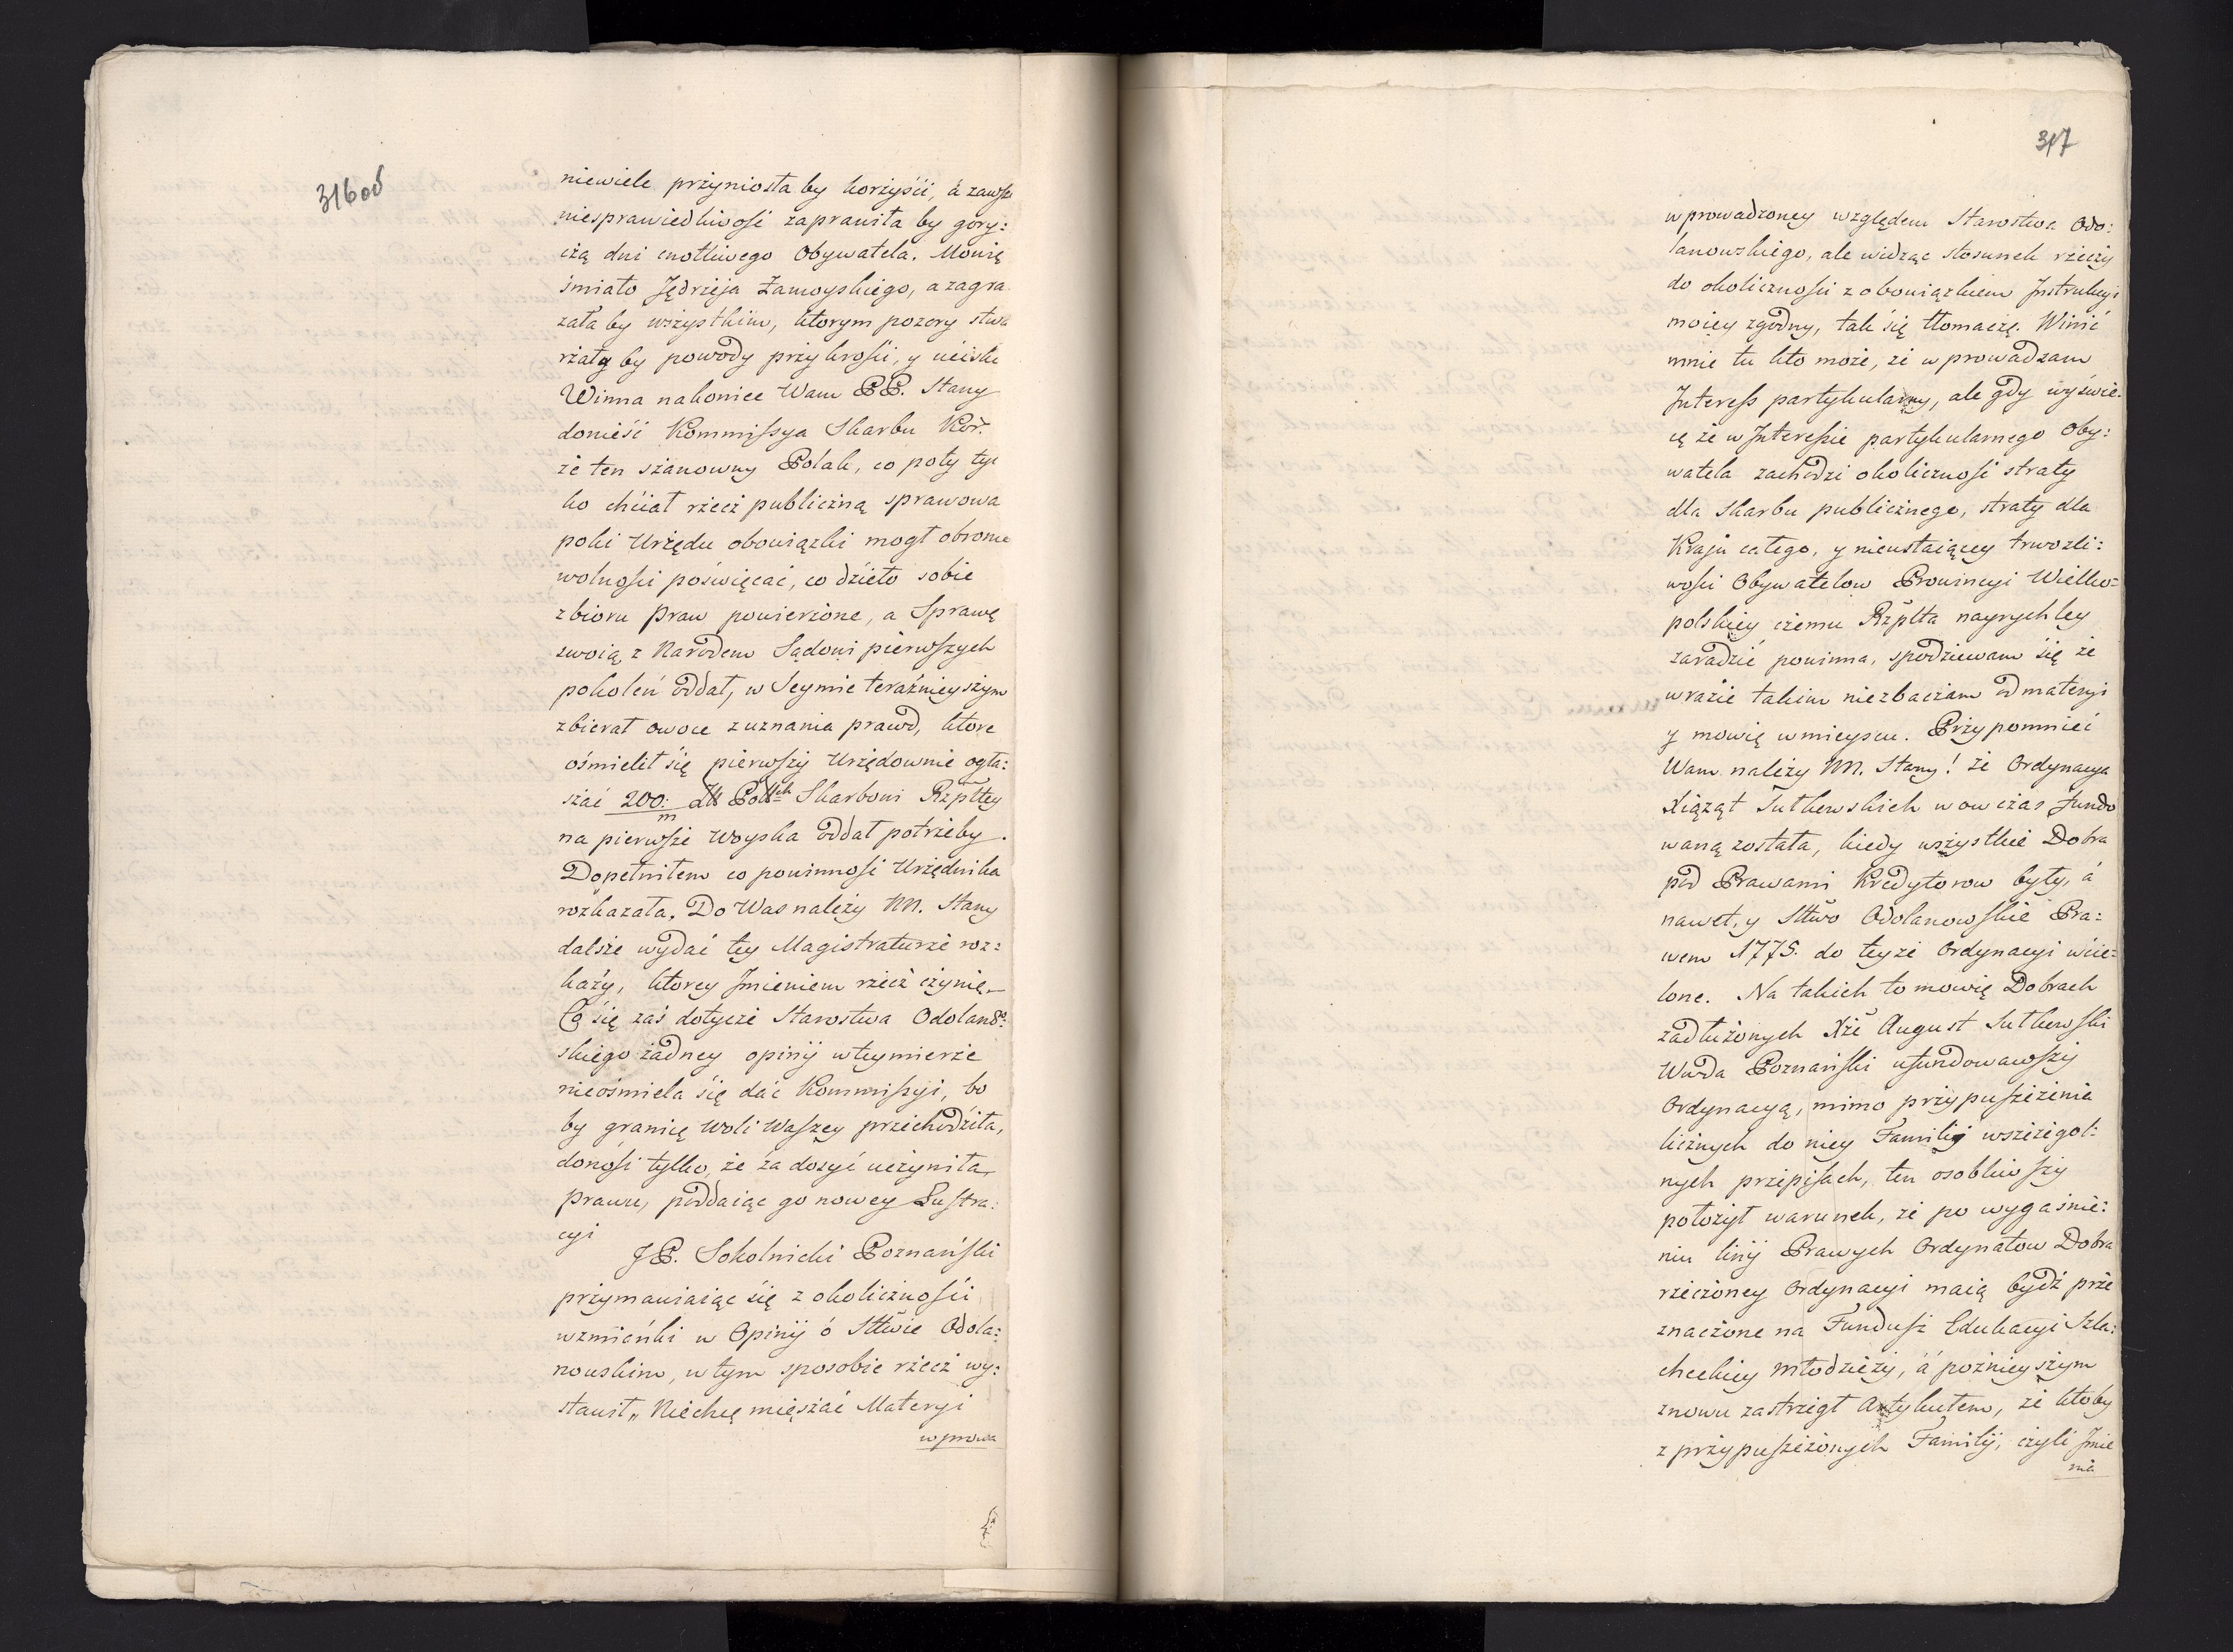 316od
niewiele przyniosła by korzyści, á zawsze
niesprawiedliwość zaprawiła by gory:
czą dni cnotliwego Obywatela. Mowię
śmiało Jędrzeja Zamoyskiego, a zagra
żała by wszystkim, ktorym pozory stwa
rzały by powody przykrości, y ucisku
Winna nakoniec Wam PP. Stany
donieść Kommissya Skarbu Kor.
że ten szanowny Polak, co poty tyl
ko chciał rzecz publiczną sprawowa
poki Urzędu obowiązki mogł obronie
wolności poświęcać, co dzieło sobie
zbioru Praw powierzone, a Sprawę
swoią z Narodem Sądowi pierwszych
pokoleń oddał, w Seymie teraźnieyszym
zbierał owoce z uznania prawd, ktore
ośmielił się pierwszy Urzędownie ogła:
szać 200: Zł Polskich Skarbowi Rzpltey
m
na pierwsze Woyska oddał potrzeby.
Dopełniłem co powinność Urzędnika
rozkazała. Do Was należy NN. Stany
dalsze wydać tey Magistraturze roz:
kazy, ktorey Jmieniem rzecz czynię.
Co się zaś dotycze Starostwa Odolano:
skiego żadney opinij w tey mierze
nieośmiela się dać Kommissyi, bo
by granicę Woli Waszey przechodziła,
donosi tylko, że za dosyć uczyniła
prawu, poddaiąc go nowey Lustra:
cyi
J P. Sokolnicki Poznański
przymawiaiąc się z okoliczności
wzmianki w Opinij ó Sttwie Odola:
nowskim, w tym sposobie rzecz wy:
stawił „ Niechcę mięszać Materyi
wprowa
317
wprowadzoney względem Starostwa Odo:
lanowskiego, ale widząc stosunek rzeczy
do okoliczności z obowiązkiem Jnstrukcyi
moiey zgodny, tak się tłomaczę. Winić
mnie tu kto może, że wprowadzam
Jnteress partykularny, ale gdy wyświe:
cę że w Jnteressie partykularnego Oby:
watela zachodzi okoliczność straty
dla Skarbu publicznego, straty dla
Kraju całego, y nieustaiącey trwożli:
wości Obywatelow Prowincyi Wielko=
polskiey czemu Rzplta nayrychley
zaradzić powinna, spodziewam się że
w razie takim niezbaczam od materyi
y mowię w mieyscu. Przypomnieć
Wam należy NN. Stany! że Ordynacya
Xiążąt Sułkowskich w ow czas fundo
waną została, kiedy wszystkie Dobra
pod Prawami Kredytorow były, á
nawet, y Sttwo Odolanowskie Pra:
wem 1775. do teyże Ordynacyi wcie=
lone. Na takich to mowię Dobrach
zadłużonych Xże August Sułkowski
Wwda Poznański ufundowawszy
Ordynacyą, mimo przypuszczenia
licznych do niey Familij w szczegol:
nych przepisach, ten osobliwszy
położył warunek, że po wygaśnie:
niu linij Prawych Ordynatow Dobra
rzeczoney Ordynacyi maią bydź prze
znaczone na Fundusz Edukacyi Szla:
checkiey młodzieży, á poźnieyszym
znowu zastrzegł Artykułem, że ktoby
z przypuszczonych Familij, czyli Jmie
nia